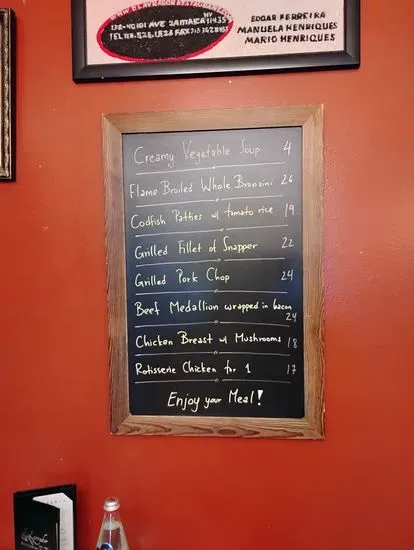 WWW.OLAVRADORRESTAURANT.COM
138-40 101 AVE JAMAICA NY 11435
EDGAR FERREIRA
MANUELA HENRIQUES
MARIO HENRIQUES
Creamy Vegetable Soup 4
Flame Broiled Whole Bronzini 26
Codfish Patties w/ tomato rice 19
Grilled Fillet of Snapper 22
Grilled Pork Chop 24
Beef Medallion wrapped in bacon
24
Chicken Breast w/ Mushrooms 18
Rotisserie Chicken for 1 17
Enjoy your Meal!